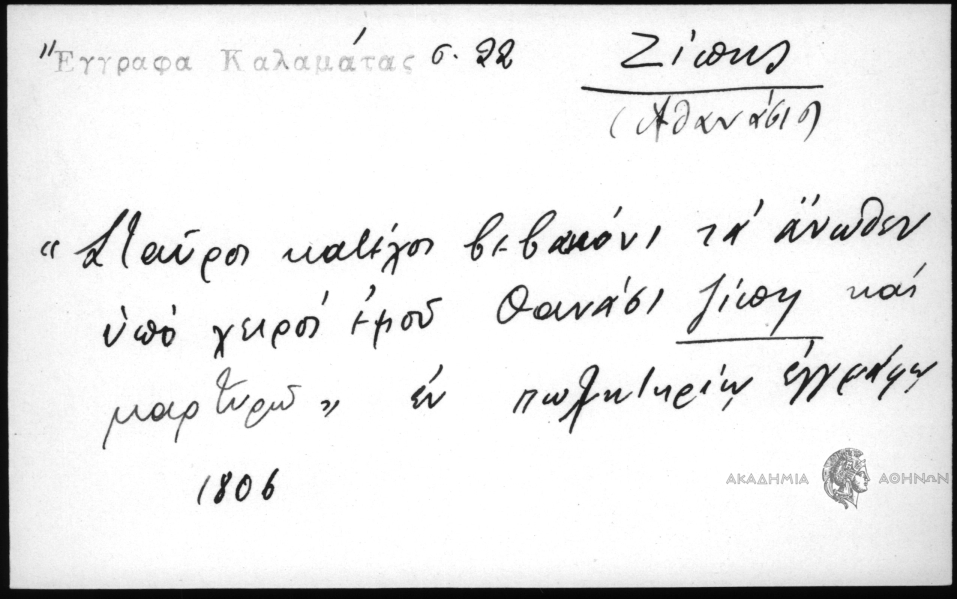 "Έγγραφα Καλαμάτας σ. 22
Ζίπης
(Αθανάσιος)
"Σταύρος κατέχος βεβαιόνι τά άνωθεν
ύπό χειρός έμού Θανάσι ζίπη καί
μαρτυρώ" έν πωλητηρίω έγγράφω
1806
ΑΚΑΔΗΜΙΑ ΑΘΗΝΩΝ